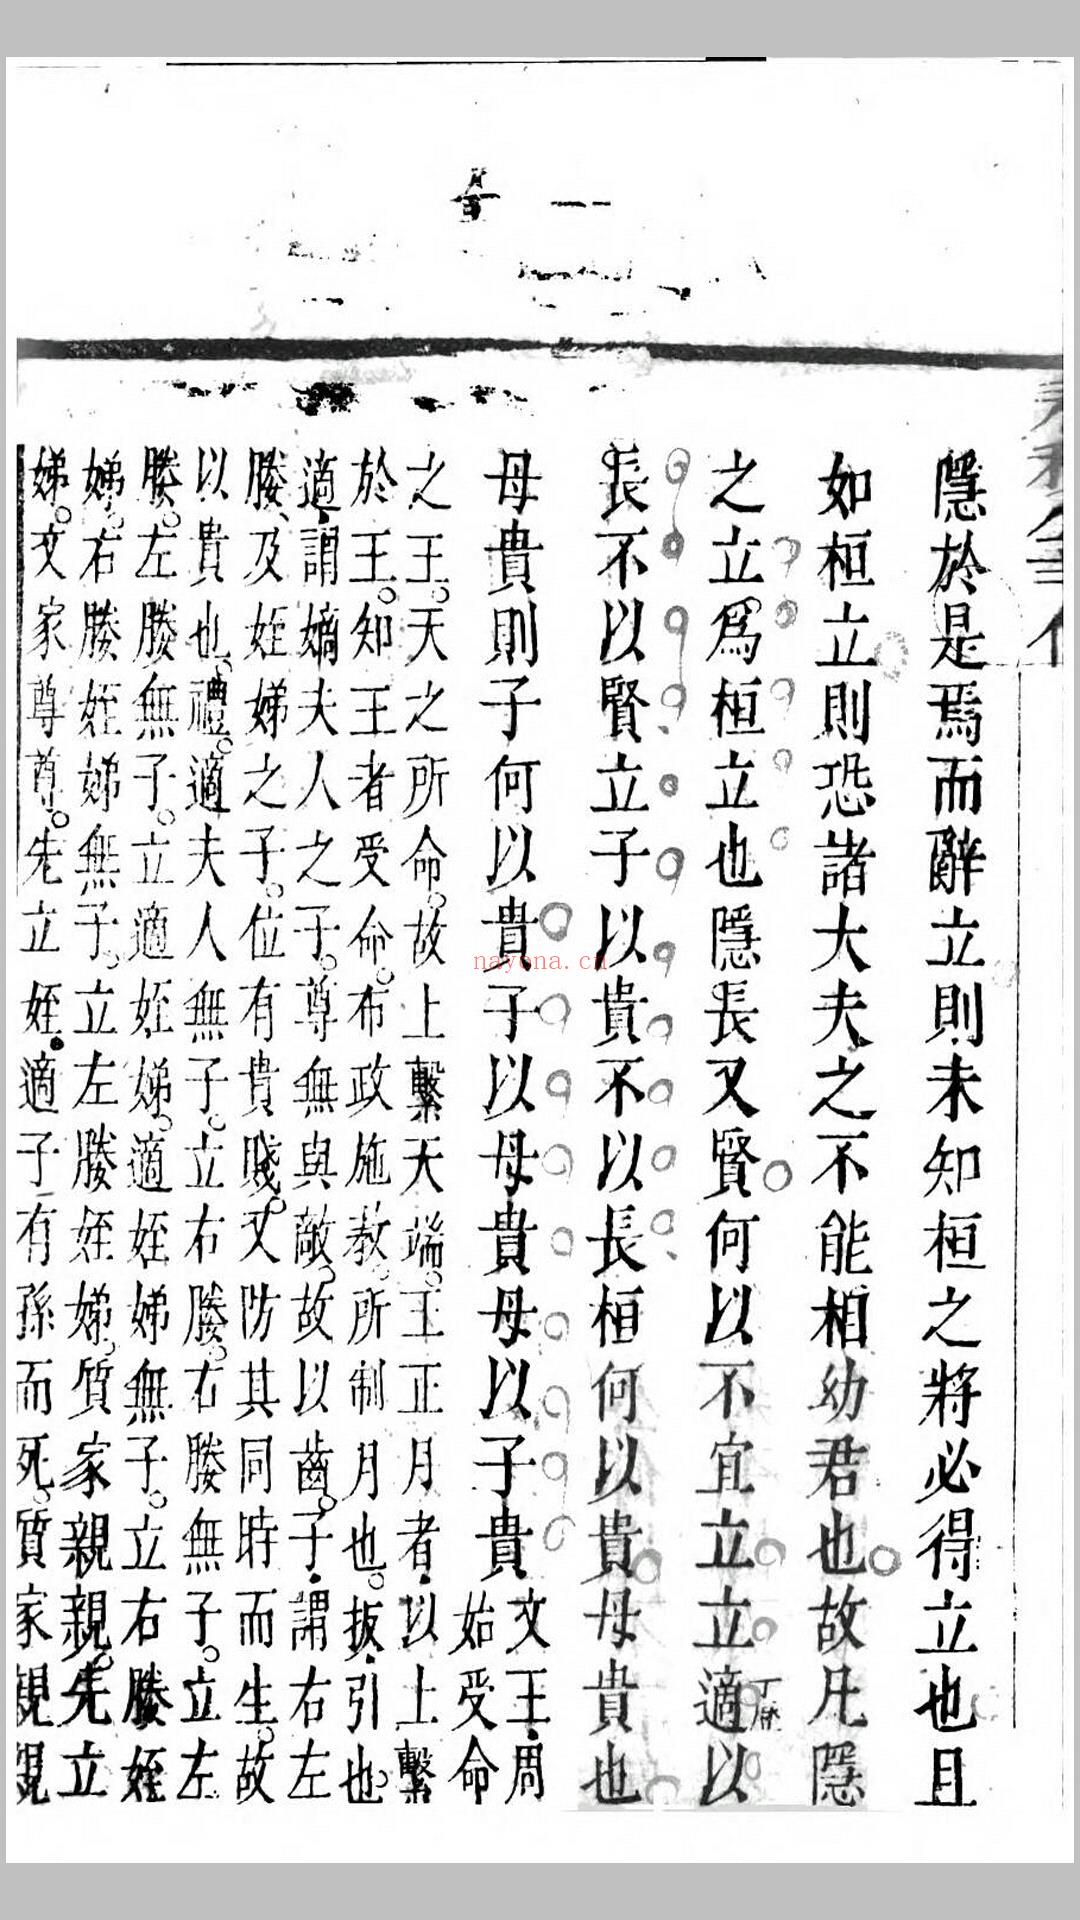 隱於是焉而辭立則未知桓之將必得立也且
如桓立則恐諸大夫之不能相幼君也故凡隱
之立爲桓立也隱長又賢何以不宜立立適丁歷以
長不以賢立子以貴不以長桓何以貴母貴也
母貴則子何以貴子以母貴母以子貴文王、周
始受命
之王。天之所命。故上繫天端。王正月者、以上繫
於王。知王者受命。布政施教。所制月也。扳、引也。
適、謂嫡夫人之子。尊無與敵。故以齒。子、謂右左
媵、及姪娣之子。位有貴賤。又防其同時而生。故
以貴也。禮。適夫人無子。立右媵。右媵無子。立左
媵。左媵無子。立適姪娣。適姪娣無子。立右媵姪
娣。右媵姪娣無子。立左媵姪娣。質家親親。先立
娣。文家尊尊。先立姪、適子有孫而死。質家親親
nayona.cn